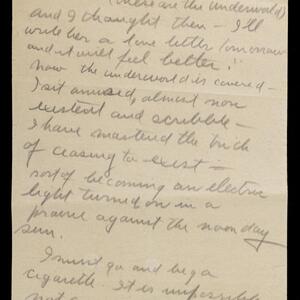 (These are the underworld)
and I thought then – I'll
write her a love letter tomorrow
and it will feel better!"
now the underworld is covered –
I sit amused, almost non
existent and scribble –
I have mastered the trick
of ceasing to exist –
sort of becoming an electric
light turned on in a
prairie against the noon day
sun.
I must go and beg a
cigarette. It is impossible